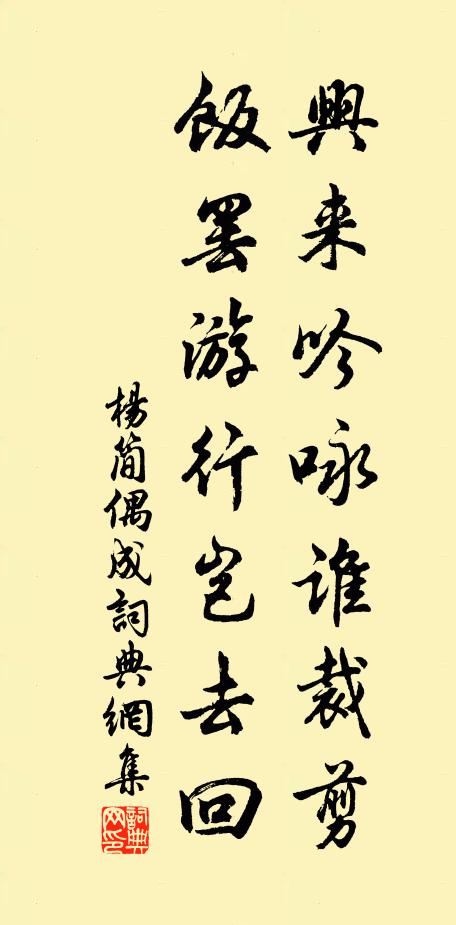 興来吟咏誰裁剪
飯罷游行岂去回
楊簡偶成詞典網集
詞典网印